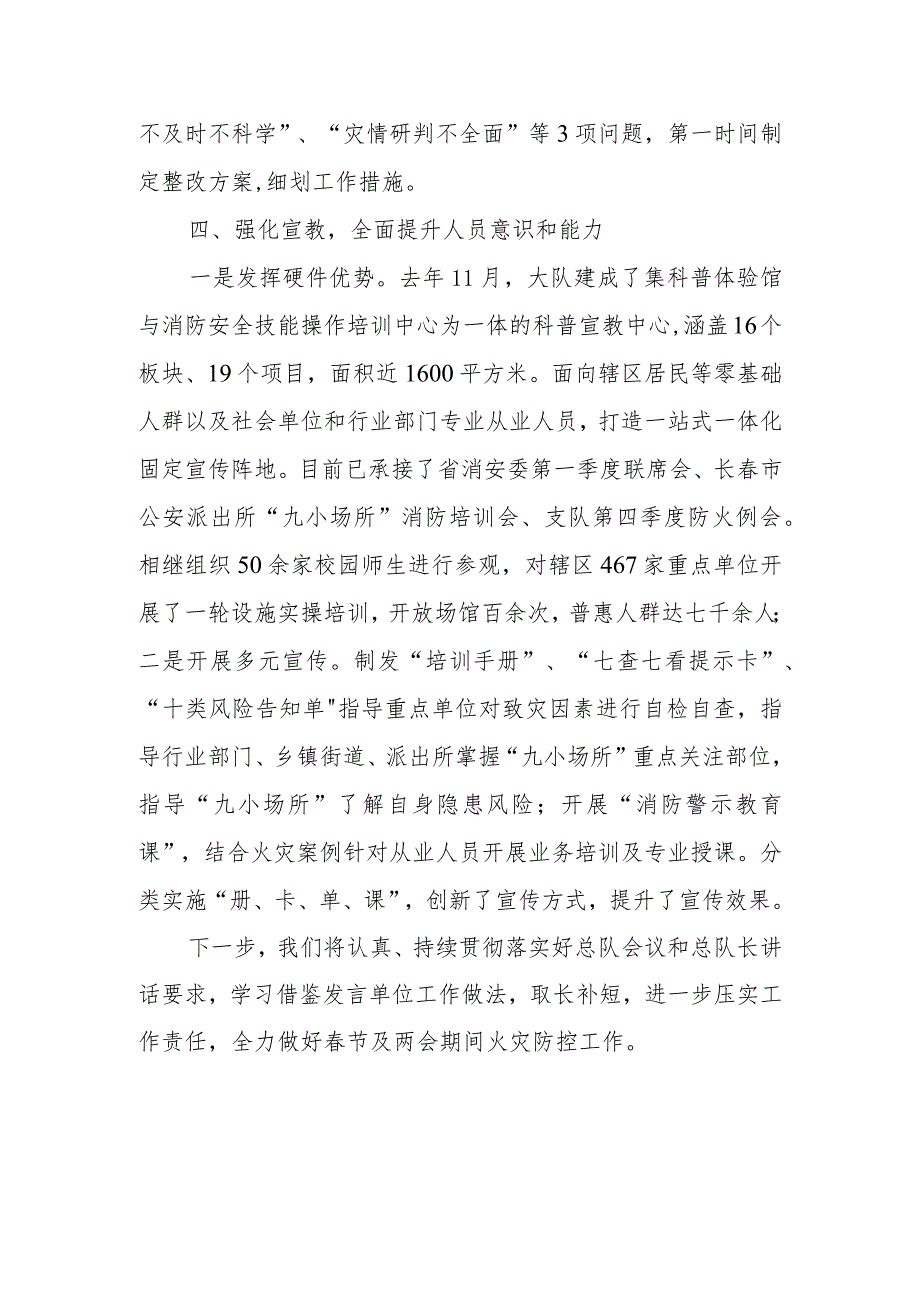 不及时不科学”、“灾情研判不全面”等 3 项问题，第一时间制
定整改方案,细划工作措施。
四、强化宣教，全面提升人员意识和能力
一是发挥硬件优势。去年 11 月，大队建成了集科普体验馆
与消防安全技能操作培训中心为一体的科普宣教中心,涵盖 16 个
板块、19 个项目，面积近 1600 平方米。面向辖区居民等零基础
人群以及社会单位和行业部门专业从业人员，打造一站式一体化
固定宣传阵地。目前已承接了省消安委第一季度联席会、长春市
公安派出所“九小场所”消防培训会、支队第四季度防火例会。
相继组织 50 余家校园师生进行参观，对辖区 467 家重点单位开
展了一轮设施实操培训，开放场馆百余次，普惠人群达七千余人；
二是开展多元宣传。制发“培训手册”、“七查七看提示卡”、
“十类风险告知单"指导重点单位对致灾因素进行自检自查，指
导行业部门、乡镇街道、派出所掌握“九小场所”重点关注部位，
指导“九小场所”了解自身隐患风险；开展“消防警示教育
课”，结合火灾案例针对从业人员开展业务培训及专业授课。分
类实施“册、卡、单、课”，创新了宣传方式，提升了宣传效果。
下一步，我们将认真、持续贯彻落实好总队会议和总队长讲
话要求，学习借鉴发言单位工作做法，取长补短，进一步压实工
作责任，全力做好春节及两会期间火灾防控工作。